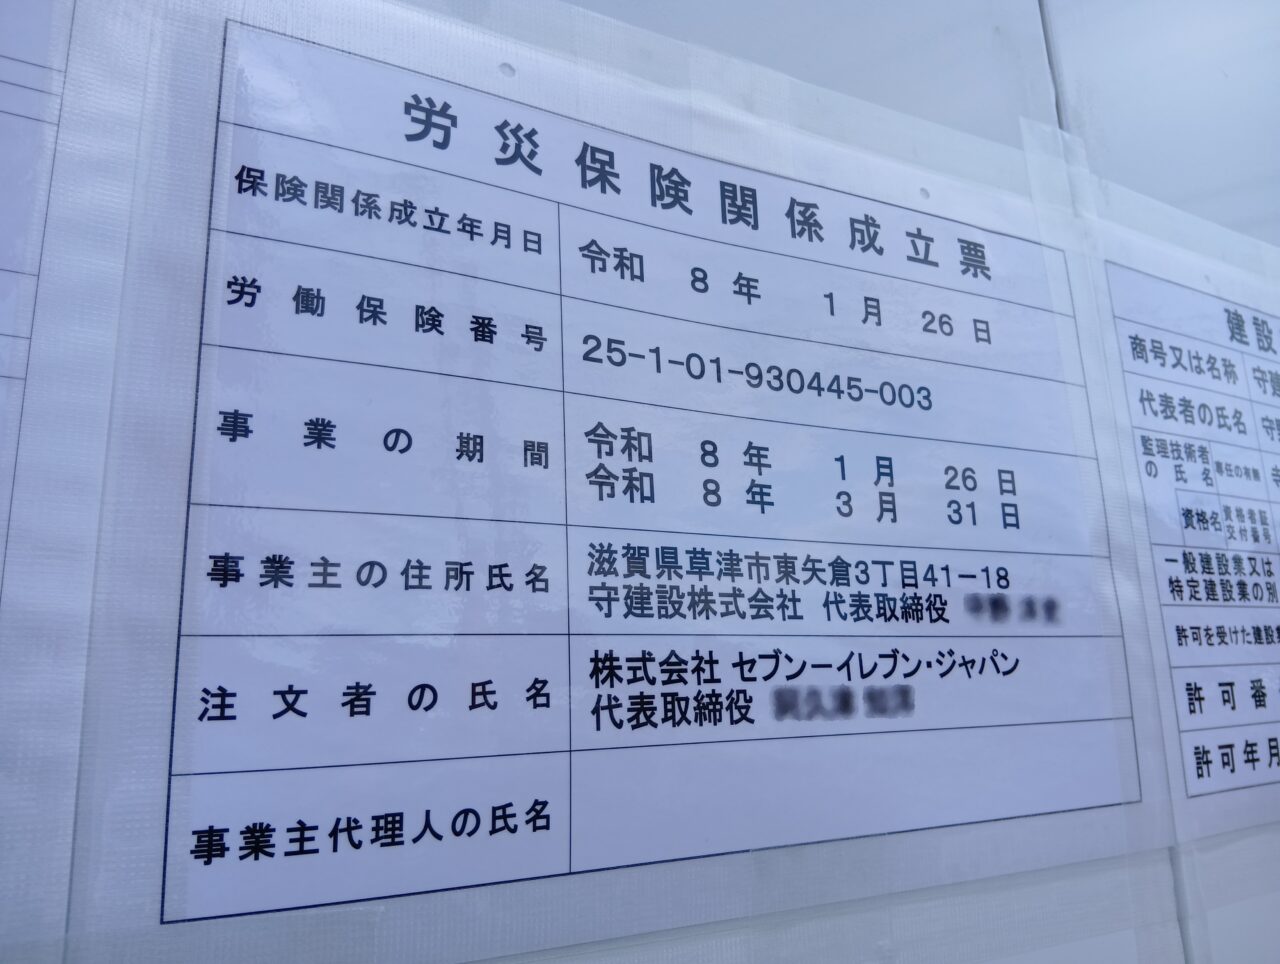 労災保険関係成立票
保険関係成立年月日 令和 8年 1月 26日
労働保険番号 25-1-01-930445-003
事業の期間 令和 8年 1月 26日
令和 8年 3月 31日
事業主の住所氏名 滋賀県草津市東矢倉3丁目41-18
守建設株式会社 代表取締役
注文者の氏名 株式会社 セブン-イレブン・ジャパン
代表取締役
事業主代理人の氏名
建設
商号又は名称 守建
代表者の氏名 守
監理技術者
の氏名 専任の有無
資格名 資格者証
交付番号
一般建設業又は
特定建設業の別
許可を受けた建設業
許可番
許可年月